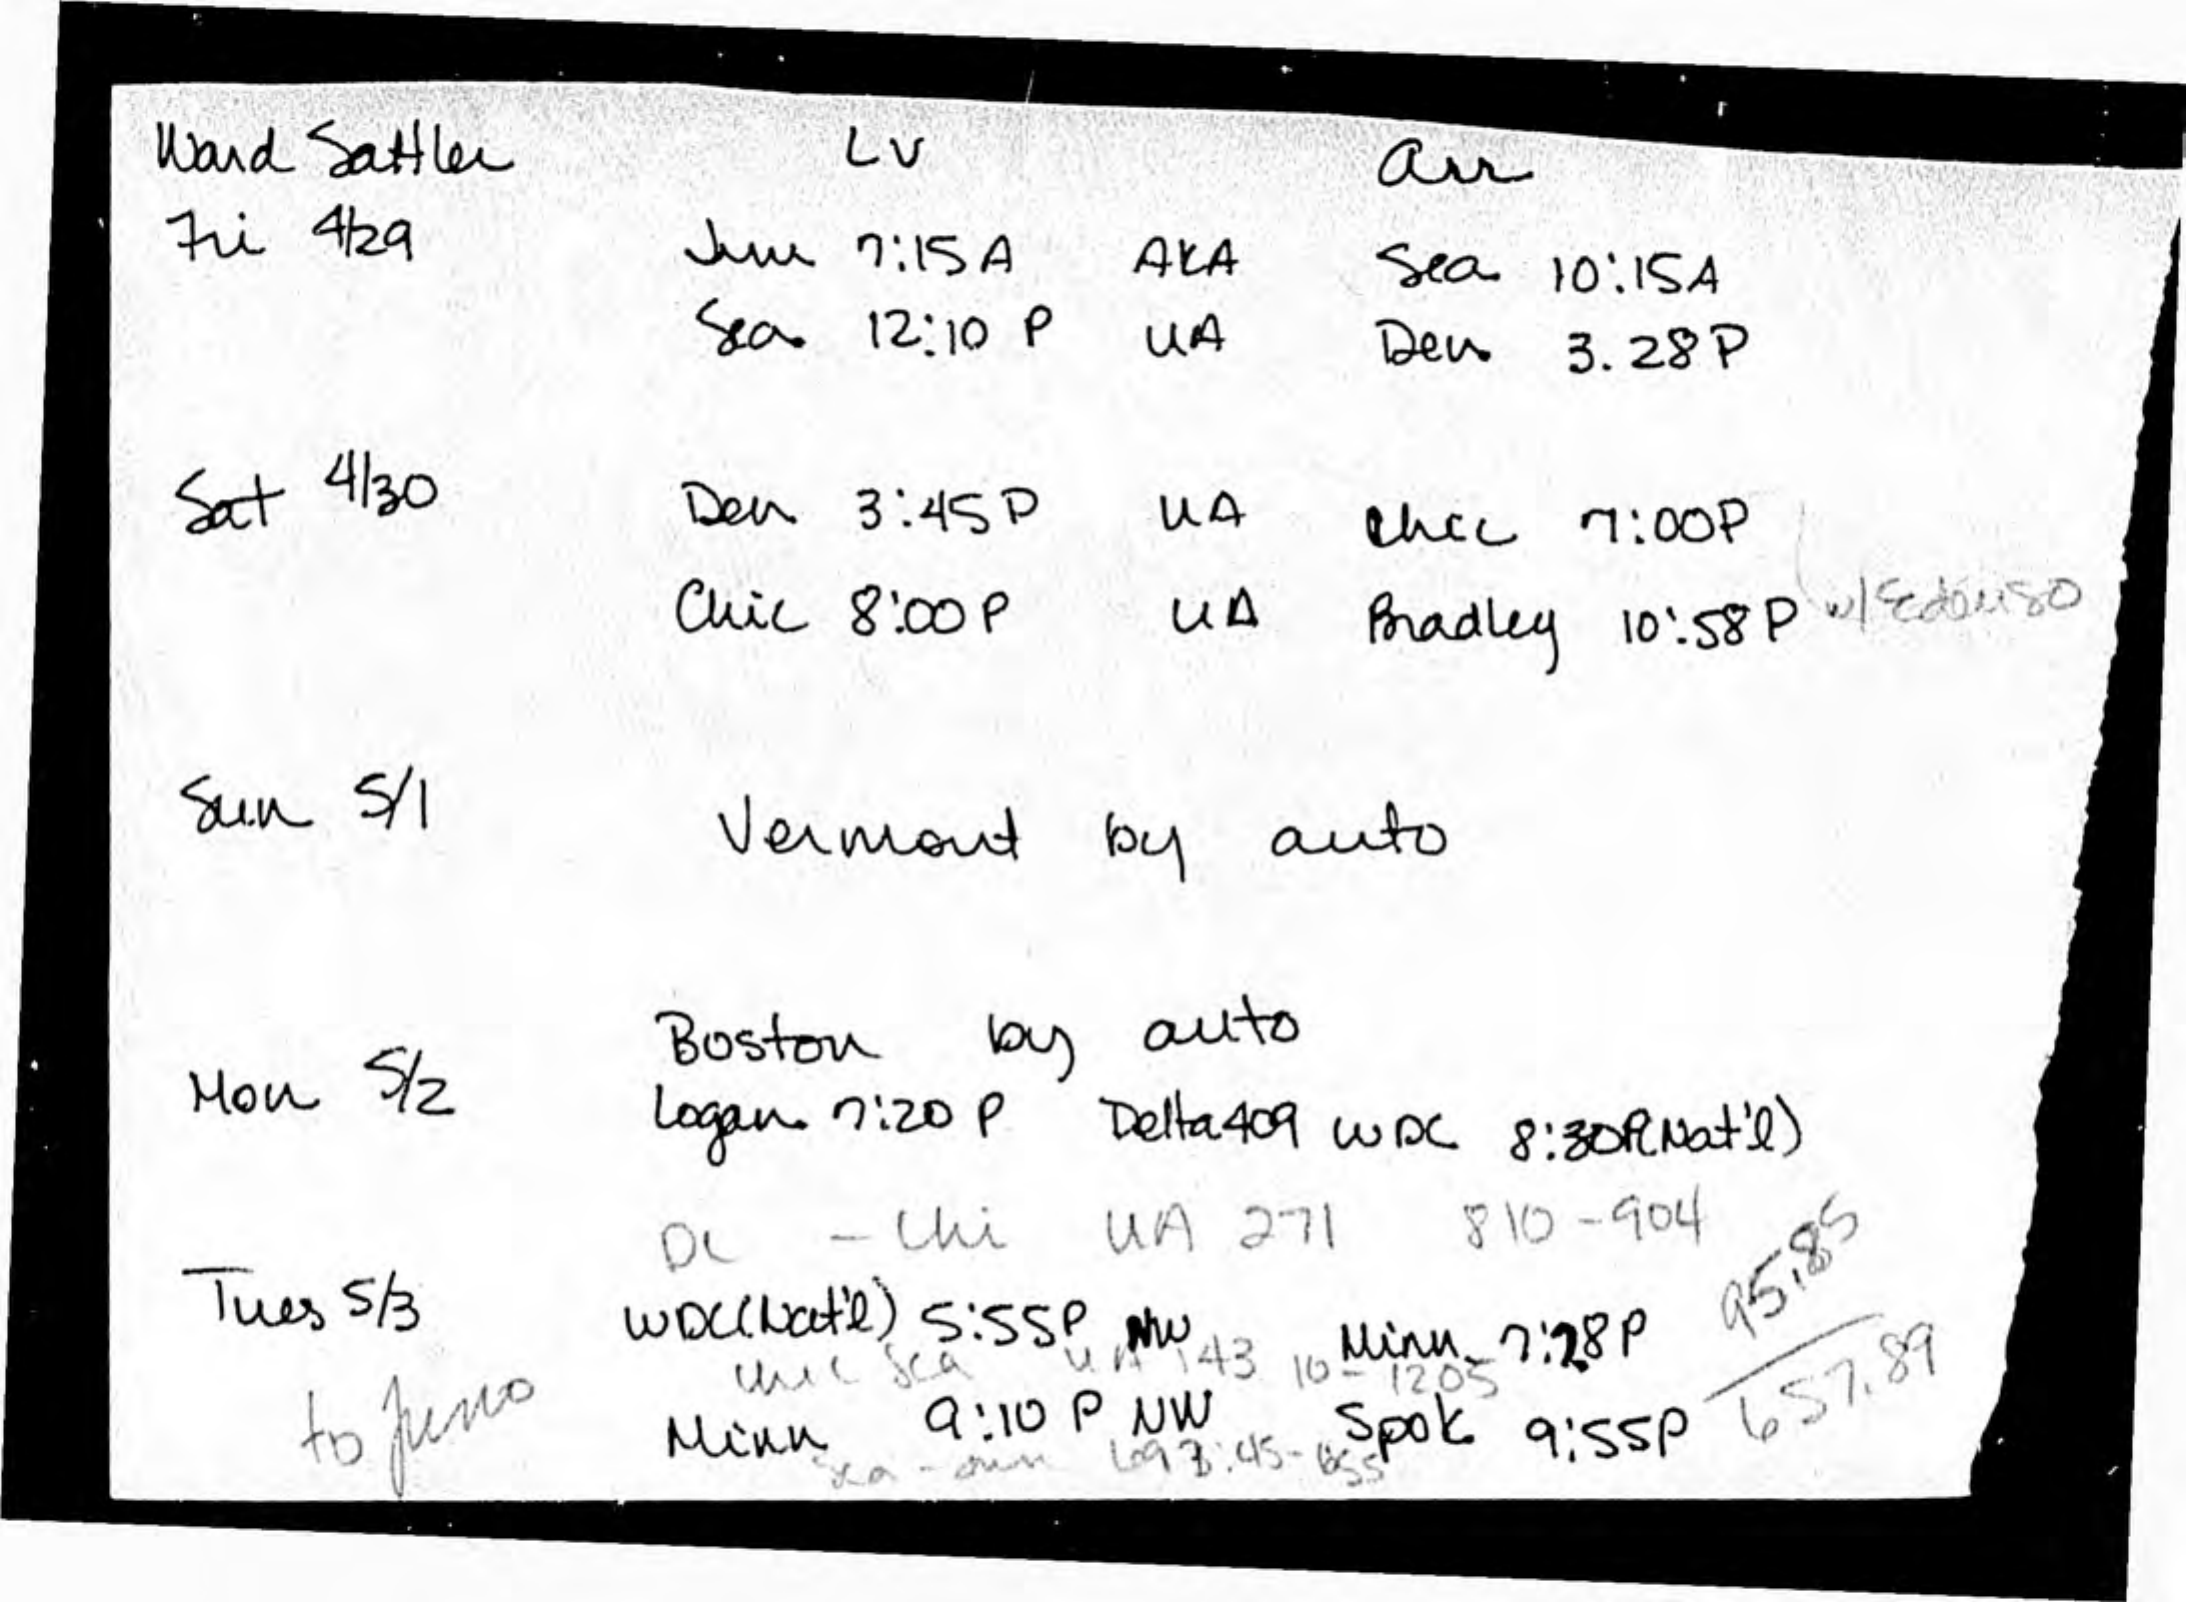 Ward Sattler LV Arr
Fri 4/29 Jun 7:15A AKA Sea 10:15A
Sea 12:10 P UA Den 3.28P
Sat 4/30 Den 3:45P UA Chic 7:00P
Chic 8:00P UA Bradley 10:58P w/
Sun 5/1 Vermont by auto
Boston by auto
Mon 5/2 Logan 7:20 P Delta 409 WDC 8:30P(Nat'l)
DC - Chi UA 271 810-904
95.85
Tues 5/3 WDC(Nat'l) 5:55P NW Minn 7:28P
Chic Sea UA 143 10-1205
657.89
to Juno Minn 9:10 P NW Spok 9:55P
Sea - Jun